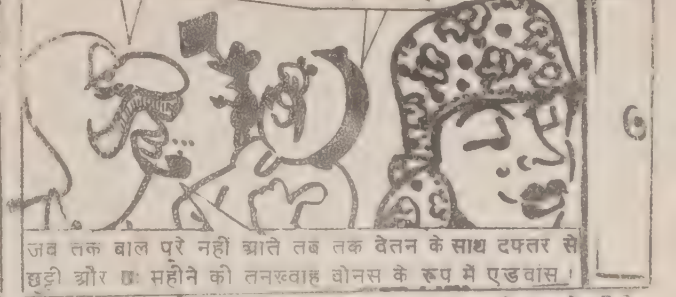 जब तक बाल पूरे नहीं आते तब तक वेतन के साथ दफ्तर से
छुट्टी और छः महीने की तनख्वाह बोनस के रूप में एडवांस ।